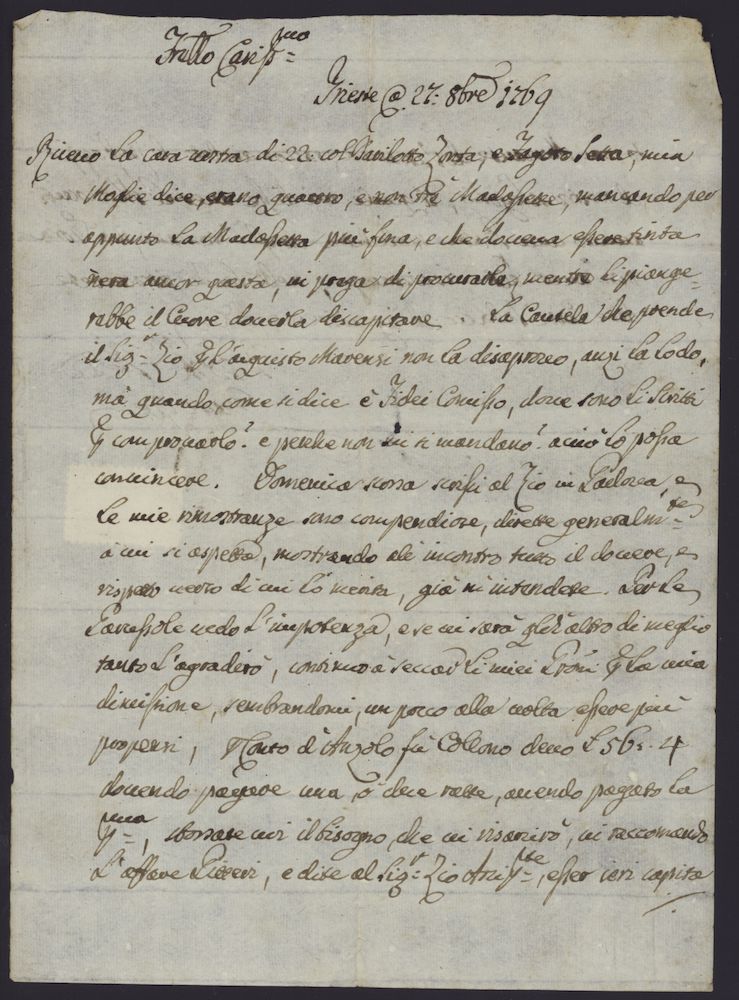 Frello Cariss.mo
Trieste @ 27: 8bre 1769
Ricevo La cara vostra di 22: col Barilotto Zonta, e Fagoto Setta, mia
Moglie dice, erano quattro, e non trè Madassette, mancando per
appunto La Madassetta più fina, e che doveva essere tinta
nera ancor questa, vi prega di procurarla, mentre li piange-
rabbe il Cuore doverla discapitare. La Cautela che prende
il Sig.r Zio p L'aquisto Marensi non La disaprovo, anzi La Lodo,
mà quando, come si dice è Fidei Comisso, dove sono Li Scritti
p comprovarlo? e perche non mi si mandano? acciò Lo possa
convincere. Domenica scorsa scrissi al Zio in Padova, e
Le mie rimostranze sono compendiose, dirette generalm.te
a chi si aspetta, mostrando al'incontro tutto il dovere, e
rispetto verso di chi Lo merita, già m'intendete. Per Le
vedo L'impotenza, e se vi sarà qlche altro di meglio
tanto L'agradirò, continuo à seccar Li miei Proni p La mia
dimissione, sembrandomi, un poco alla volta essere più
propensi, Conto d'Anzolo fù Collono devo £ 56:4
dovendo pagare una, ò due ratte, avendo pagato La
p.ma, sborsate voi il bisogno, che vi risarcirò, vi raccomando
L'affare, e dite al Sig.r Zio Arcip.te, esser ieri capita